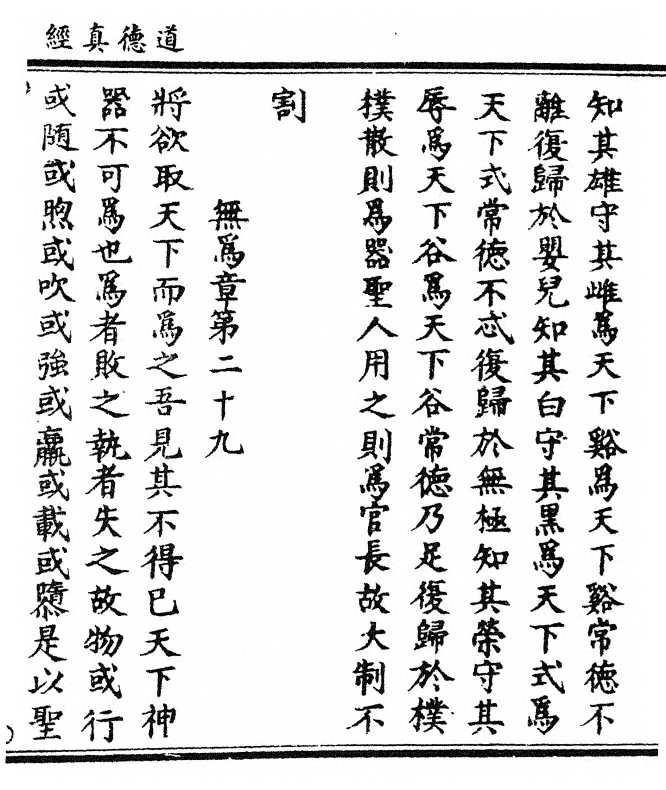 道德真經
知其雄守其雌爲天下谿爲天下谿常德不
離復歸於嬰兒知其白守其黑爲天下式爲
天下式常德不忒復歸於無極知其榮守其
辱爲天下谷爲天下谷常德乃足復歸於樸
樸散則爲器聖人用之則爲官長故大制不
割
無爲章第二十九
將欲取天下而爲之吾見其不得已天下神
器不可爲也爲者敗之執者失之故物或行
或隨或喣或吹或強或羸或載或隳是以聖